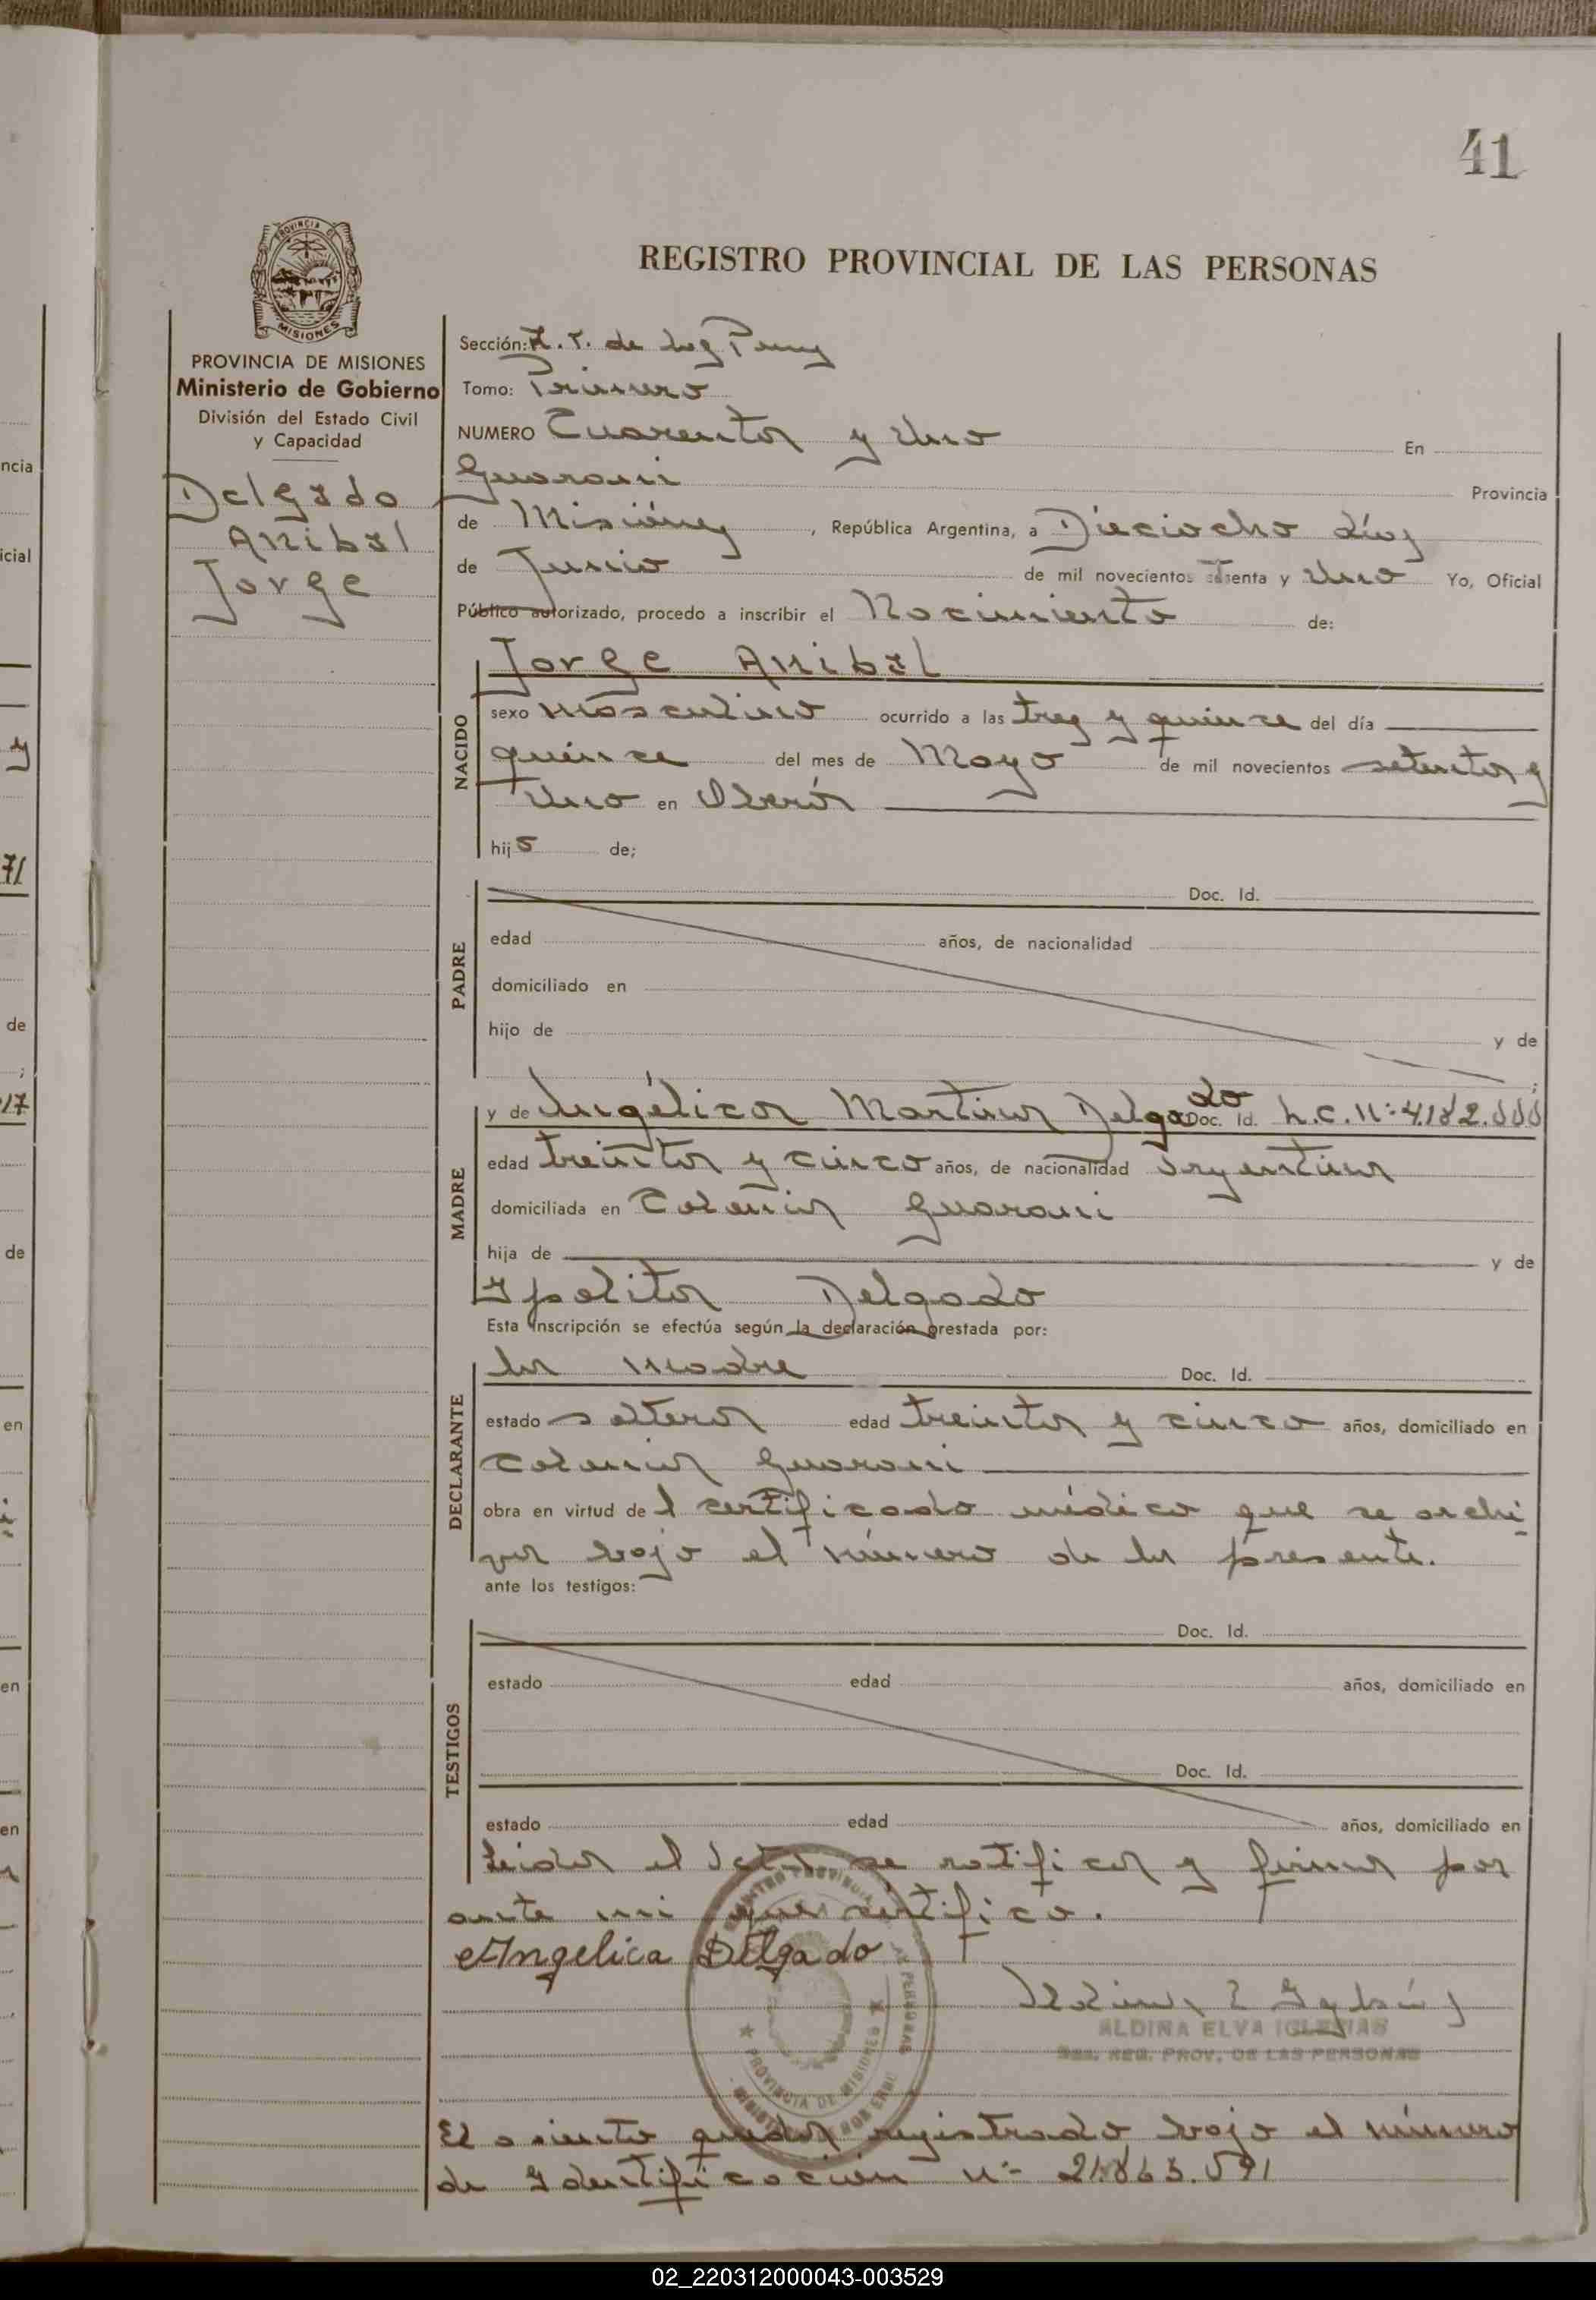 41
REGISTRO PROVINCIAL DE LAS PERSONAS
PROVINCIA DE MISIONES
Ministerio de Gobierno
División del Estado Civil
y Capacidad
Delgado
Anibal
Jorge
Sección: de
Tomo: Primero
NUMERO Cuarenta y Uno En
Guarani Provincia
de Misiónes, República Argentina, a Dieciocho días
de Junio de mil novecientos setenta y Uno Yo, Oficial
Público autorizado, procedo a inscribir el Nacimiento de:
NACIDO
Jorge Anibal
sexo masculino ocurrido a las tres y quince del día
quince del mes de Mayo de mil novecientos setenta y
Uno en Oberá
hijo de;
PADRE
Doc. Id.
edad años, de nacionalidad
domiciliado en
hijo de y de
MADRE
y de Angélica Martina Delgado Doc. Id. L.C. Nº
edad treinta y cinco años, de nacionalidad Argentina
domiciliada en Colonia Guarani
hija de y de
Ypolita Delgado
Esta inscripción se efectúa según la declaración prestada por:
DECLARANTE
la madre Doc. Id.
estado soltera edad treinta y cinco años, domiciliado en
Colonia Guarani
obra en virtud del certificado médico que se archi
va bajo el número de la presente.
ante los testigos:
TESTIGOS
Doc. Id.
estado edad años, domiciliado en
Doc. Id.
estado edad años, domiciliado en
Leida el Acta se ratifica y firma por
ante mi que certifico.
Angelica Delgado
ALDINA ELVA IGLESIAS
REG. PROV. DE LAS PERSONAS
PROVINCIA DE MISIONES
El asiento queda registrado bajo el número
de Ydentificación nº
02_220312000043-003529